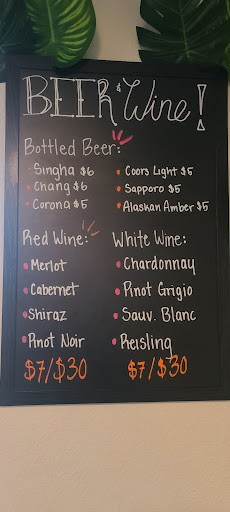 BEER & Wine!
Bottled Beer:
Singha $6
Chang $6
Corona $5
Coors Light $5
Sapporo $5
Alaskan Amber $5
Red Wine:
Merlot
Cabernet
Shiraz
Pinot Noir
$7/$30
White Wine:
Chardonnay
Pinot Grigio
Sauv. Blanc
Reisling
$7/$30